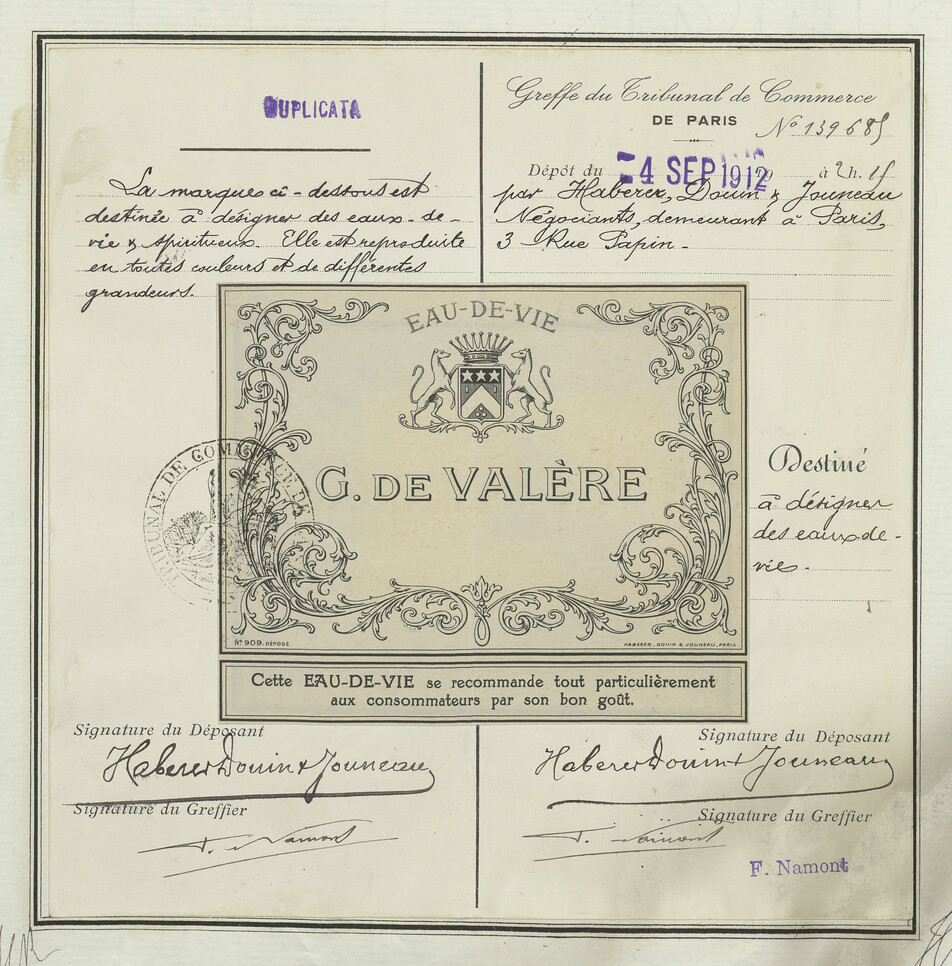 DUPLICATA
La marque ci-dessous est
destinée à désigner des eaux-de-
vie & spiritueux. Elle est reproduite
en toutes couleurs et de différentes
grandeurs.
Greffe du Tribunal de Commerce
DE PARIS
No 139685
Dépôt du 4 SEP 1912 à 2 h. 15
par Haberer, Douin & Jouneau
Négociants, demeurant à Paris,
3 Rue Papin -
EAU-DE-VIE
G. DE VALÈRE
No 909. DÉPOSÉ
HABERER, DOUIN & JOUNEAU, PARIS
TRIBUNAL DE COMMERCE
Destiné
à désigner
des eaux de-
vie.
Cette EAU-DE-VIE se recommande tout particulièrement
aux consommateurs par son bon goût.
Signature du Déposant
Haberer Douin & Jouneau
Signature du Greffier
F. Namont
Signature du Déposant
Haberer Douin & Jouneau
Signature du Greffier
F. Namont
F. Namont